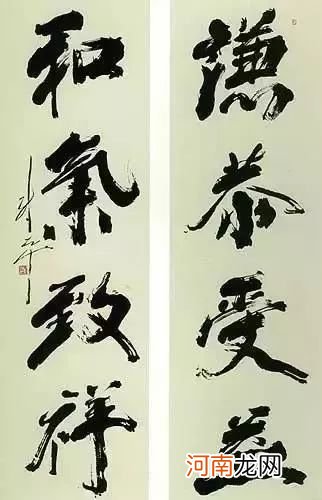 谦恭受益
和氣致祥
河南龙网